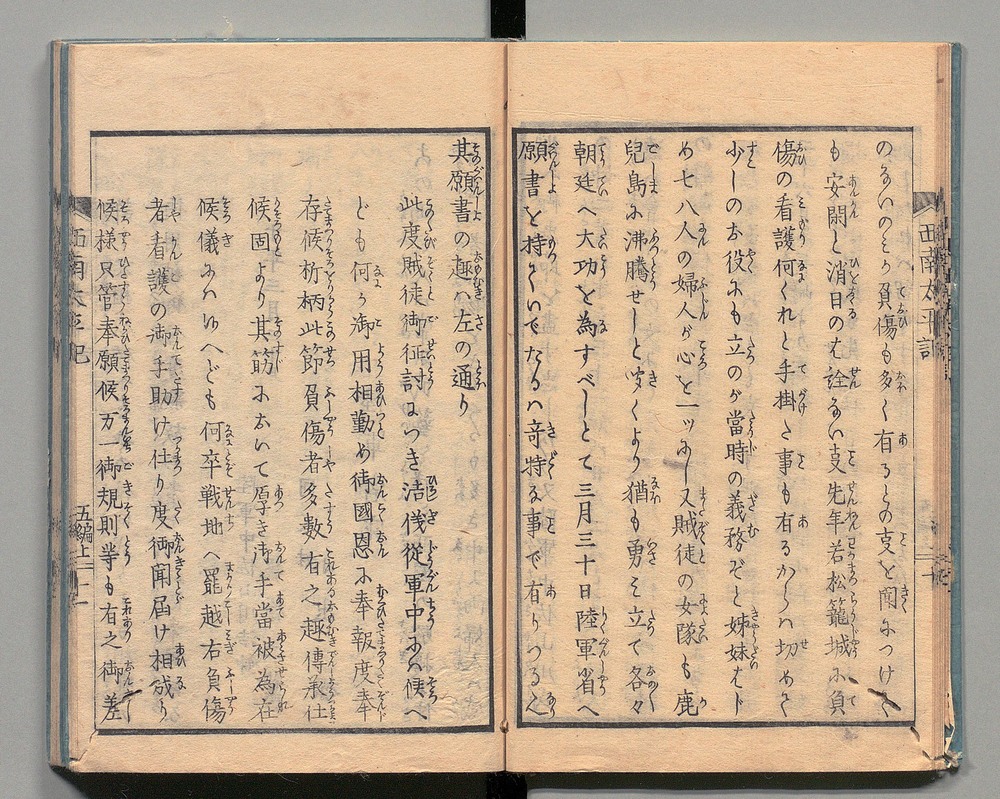 のないのミか負傷も多く有るとの支を聞につけても
も安閑と消日のも詮ない支先年若松籠城に負
傷の看護何くれと手掛た事も有るからハ切めて
少しのお役にも立のが當時の義務ぞと姉妹はじ
め七八人の婦人が心を一ツにし又賊徒の女隊も鹿
兒島に沸騰せしと聞くより猶も勇ミ立て各々
朝廷へ大功を為すべしとて三月三十日陸軍省へ
願書を持くいでたるハ奇特る事で有りつる
其願書の趣ハ左の通り
此度賊徒御征討につき洁儀從軍中にハ候へ
ども何か御用相勤め御國恩に奉報度奉
存候折柄此節負傷者多數有之趣傳承仕
候固より其筋において厚き御手當被為在
候儀にハゆへども何卒戦地へ罷越右負傷
者看護の御手助け仕り度御聞届け相成り
候様只管奉願候万一御規則等も有之御差
西南太平記
五編上
二